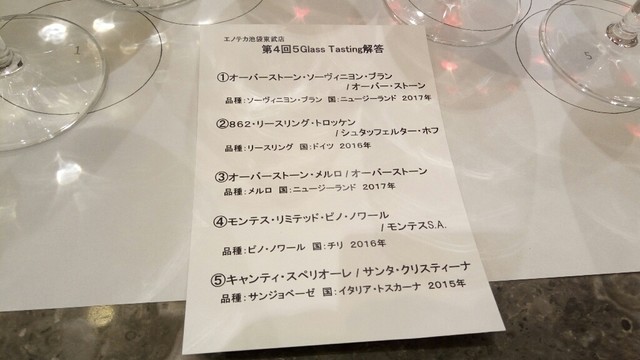 エノテカ池袋東武店
第4回5Glass Tasting解答
①オーバーストーン・ソーヴィニヨン・ブラン
/オーバー・ストーン
品種:ソーヴィニヨン・ブラン 国:ニュージーランド 2017年
②862・リースリング・トロッケン
/シュタッフェルター・ホフ
品種:リースリング 国:ドイツ 2016年
③オーバーストーン・メルロ/オーバーストーン
品種:メルロ 国:ニュージーランド 2017年
④モンテス・リミテッド・ピノ・ノワール
/モンテスS.A.
品種:ピノ・ノワール 国:チリ 2016年
⑤キャンティ・スペリオーレ/サンタ・クリスティーナ
品種:サンジョベーゼ 国:イタリア・トスカーナ 2015年
1
5